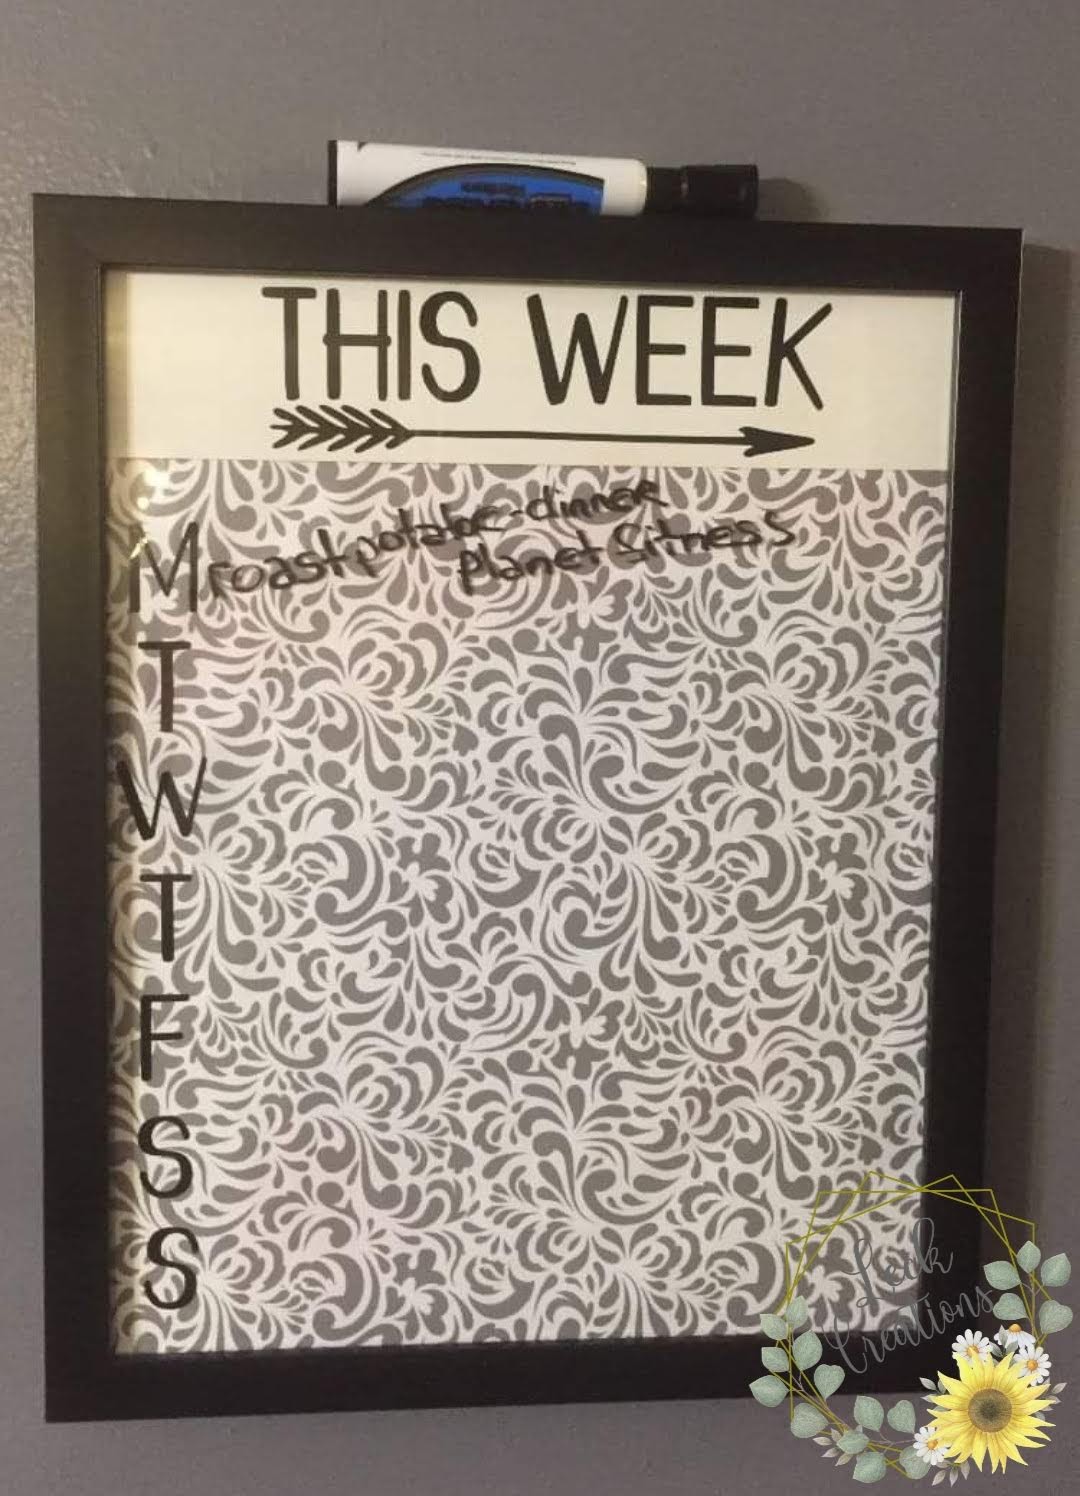 THIS WEEK
M roast potatoe-dinner
planet fitness
T
W
T
F
S
S
Creations